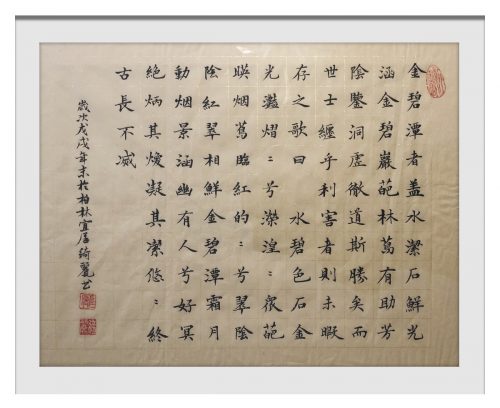 金碧潭者蓋水潔石鮮光
涵金碧巖葩林蔦有助芳
陰鑒洞虛徹道斯勝矣而
世士纏乎利害者則未暇
存之歌曰 水碧色石金
光灩熠〻兮濴湟〻泉葩
暎烟蔦臨紅的〻兮翠陰
陰紅翠相鮮金碧潭霜月
動烟景涵幽有人兮好冥
絕炳其煥凝其潔悠〻終
古長不滅
歲次戊戌年末於柏林宜居綺麗书